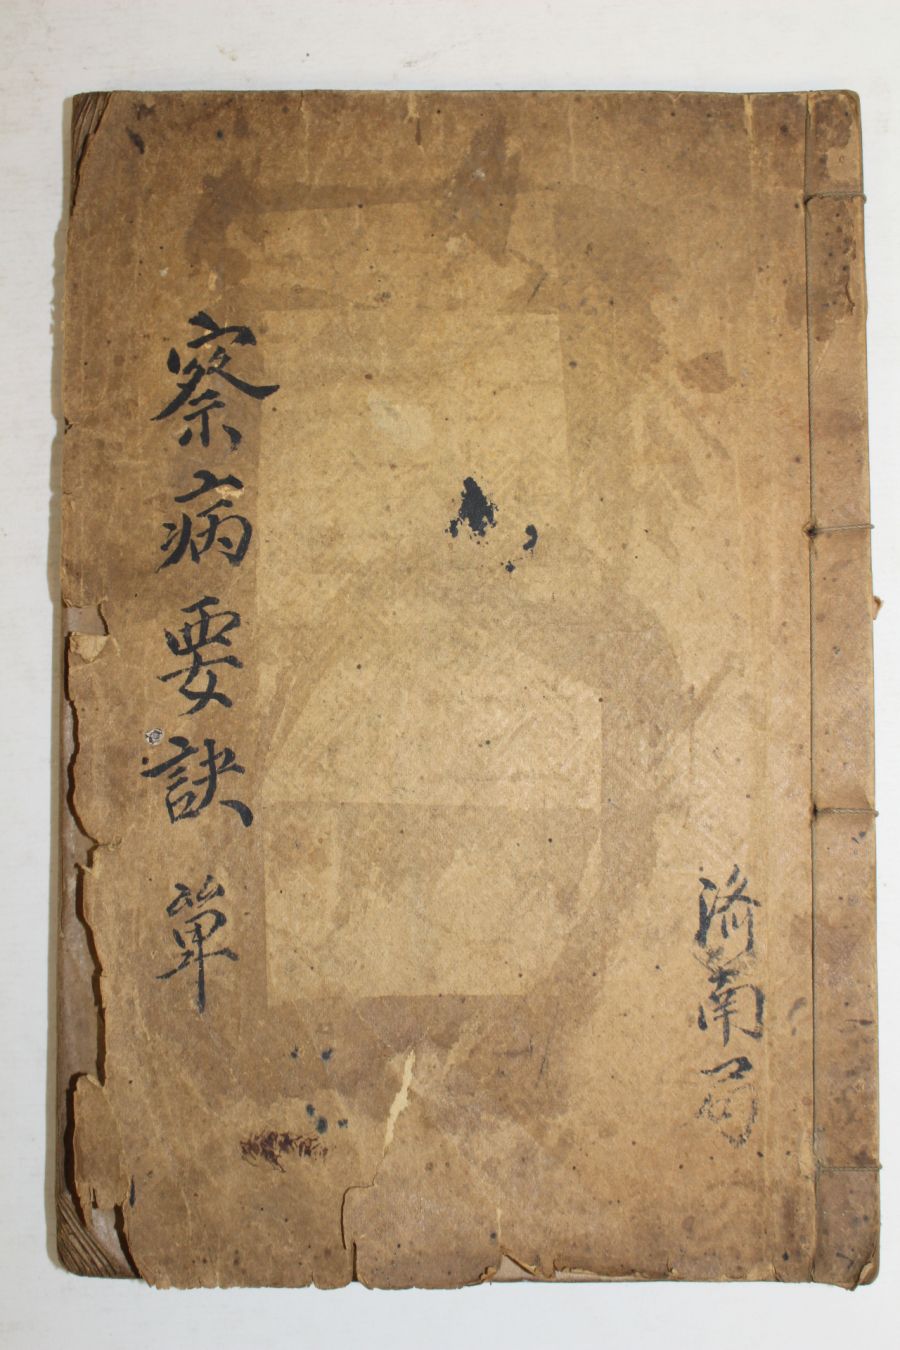 濟南局
察病要訣 單